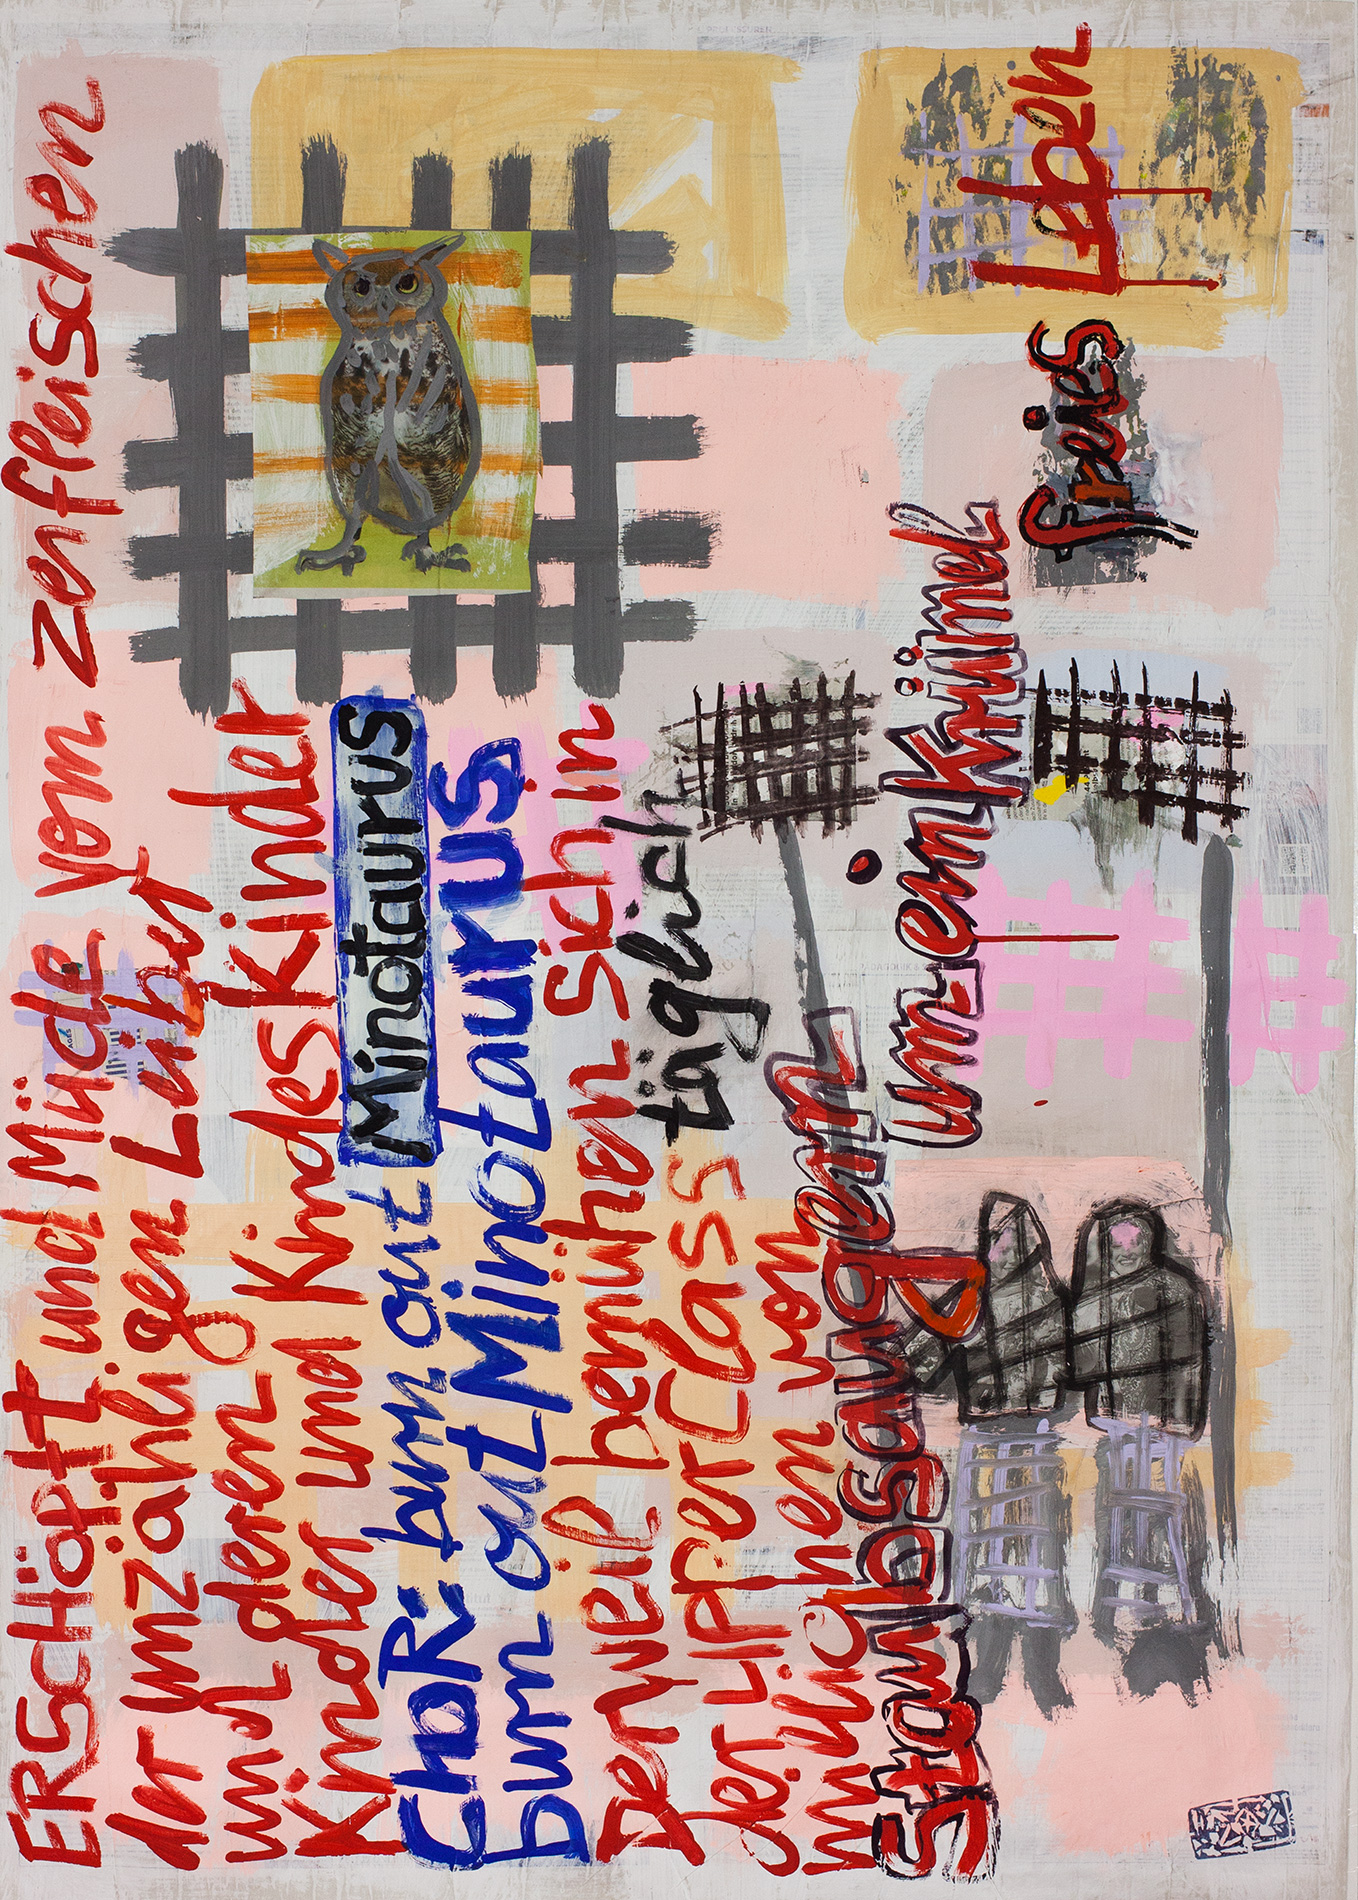 ERSCHöpft und Müde vom zerfleischen
der unzähligen
und deren
Kinder und Kindes Kinder
ChoR: burn out Minotaurus
burn out Minotaurus
Derweil bemühen sich in
der UPPER Class täglich
von
Staubsaugern um ein Krümel
freies Leben